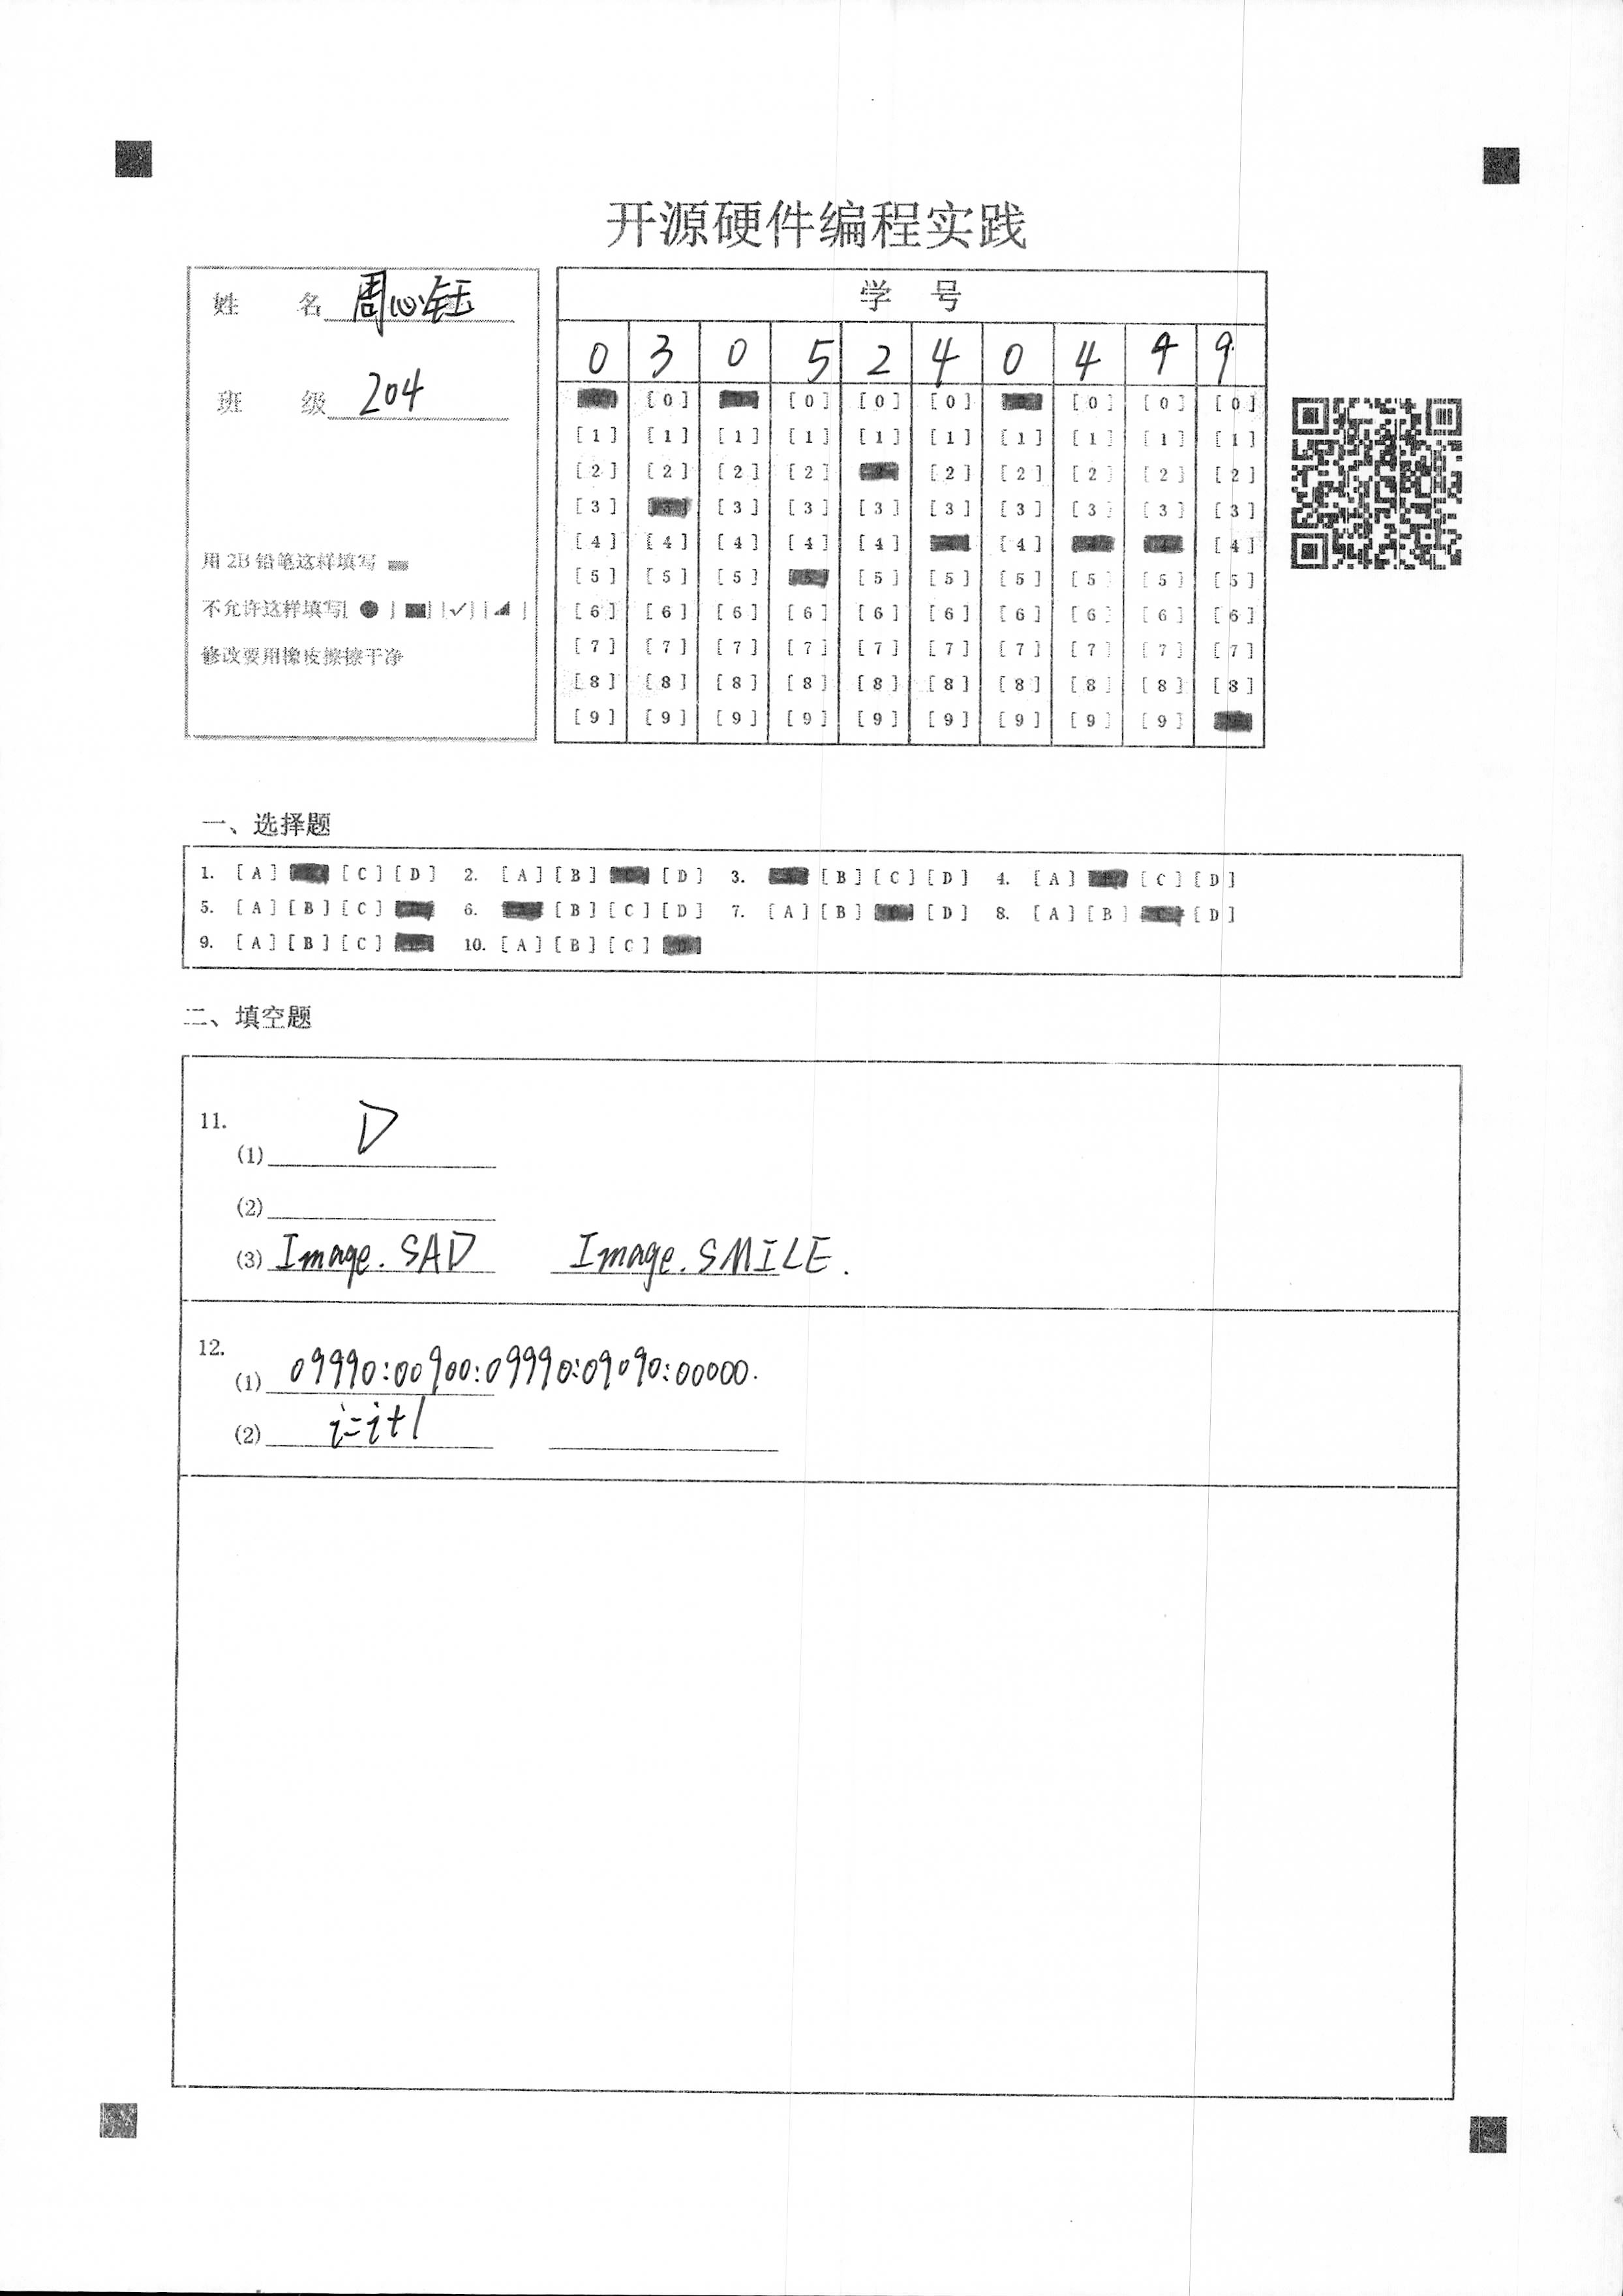 开源硬件编程实践
姓 名 周心钰
班 级 204
用2B铅笔这样填写
不允许这样填写[ ● ] [■] [✓] [◢ ]
修改要用橡皮擦擦干净
学 号
0 3 0 5 2 4 0 4 4 9
[0] [0] [0] [0] [0] [0] [0]
[1] [1] [1] [1] [1] [1] [1] [1] [1] [1]
[2] [2] [2] [2] [2] [2] [2] [2] [2]
[3] [3] [3] [3] [3] [3] [3] [3] [3]
[4] [4] [4] [4] [4] [4] [4]
[5] [5] [5] [5] [5] [5] [5] [5] [5]
[6] [6] [6] [6] [6] [6] [6] [6] [6] [6]
[7] [7] [7] [7] [7] [7] [7] [7] [7] [7]
[8] [8] [8] [8] [8] [8] [8] [8] [8] [8]
[9] [9] [9] [9] [9] [9] [9] [9] [9]
一、选择题
1. [A] [C] [D] 2. [A] [B] [D] 3. [B] [C] [D] 4. [A] [C] [D]
5. [A] [B] [C] 6. [B] [C] [D] 7. [A] [B] [D] 8. [A] [B] [D]
9. [A] [B] [C] 10. [A] [B] [C]
二、填空题
11.
(1) D
(2)
(3) Image.SAD Image.SMILE.
12.
(1) 09990:00900:09990:09090:00000.
(2) i=i+1